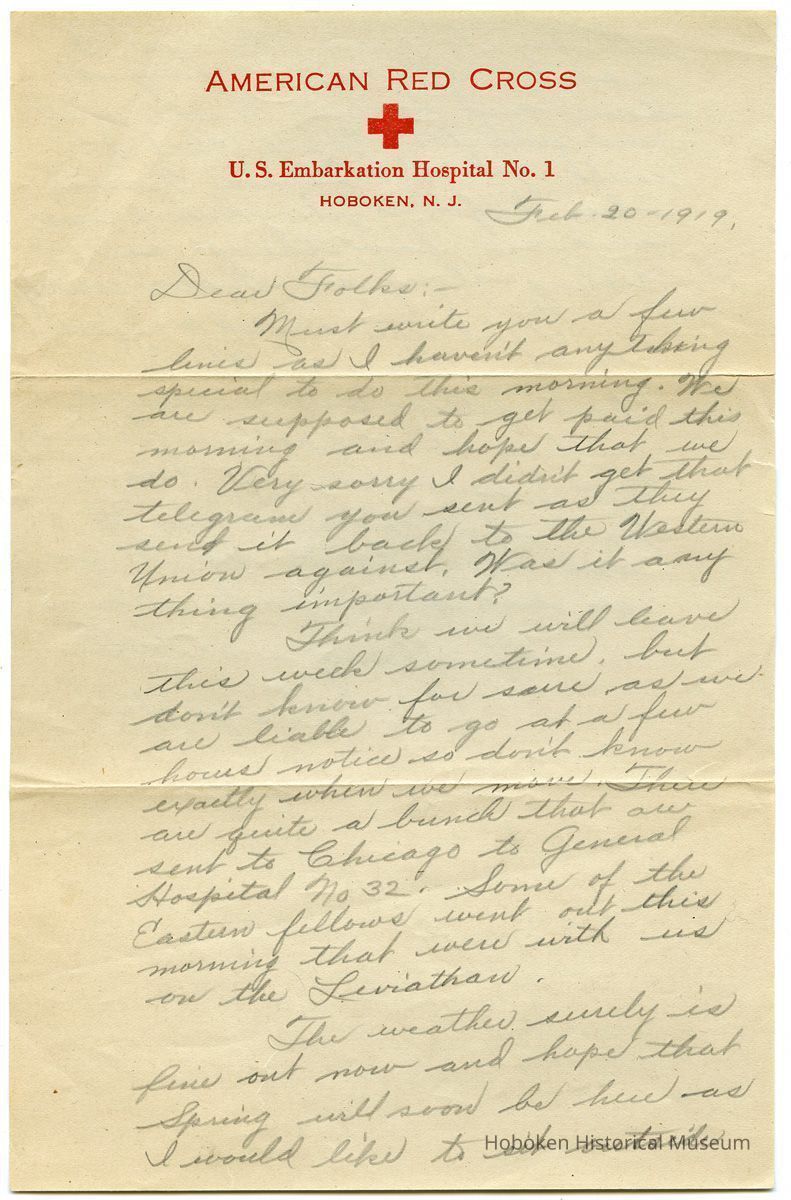 AMERICAN RED CROSS
U. S. Embarkation Hospital No. 1
HOBOKEN, N. J.
Feb. 20-1919.
Dear Folks:-
Must write you a few
lines as I haven't any thing
special to do this morning. We
are supposed to get paid this
morning and hope that we
do. Very sorry I didn't get that
telegram you sent as they
send it back to the Western
Union against. Was it any
thing important?
Think we will leave
this week sometime, but
don't know for sure as we
are liable to go at a few
hours notice so don't know
exactly when we move. There
are quite a bunch that are
sent to Chicago to General
Hospital No 32. Some of the
Eastern fellows went out this
morning that were with us
on the Leviathan.
The weather surely is
fine out now and hope that
Spring will soon be here as
I would like to
Hoboken Historical Museum